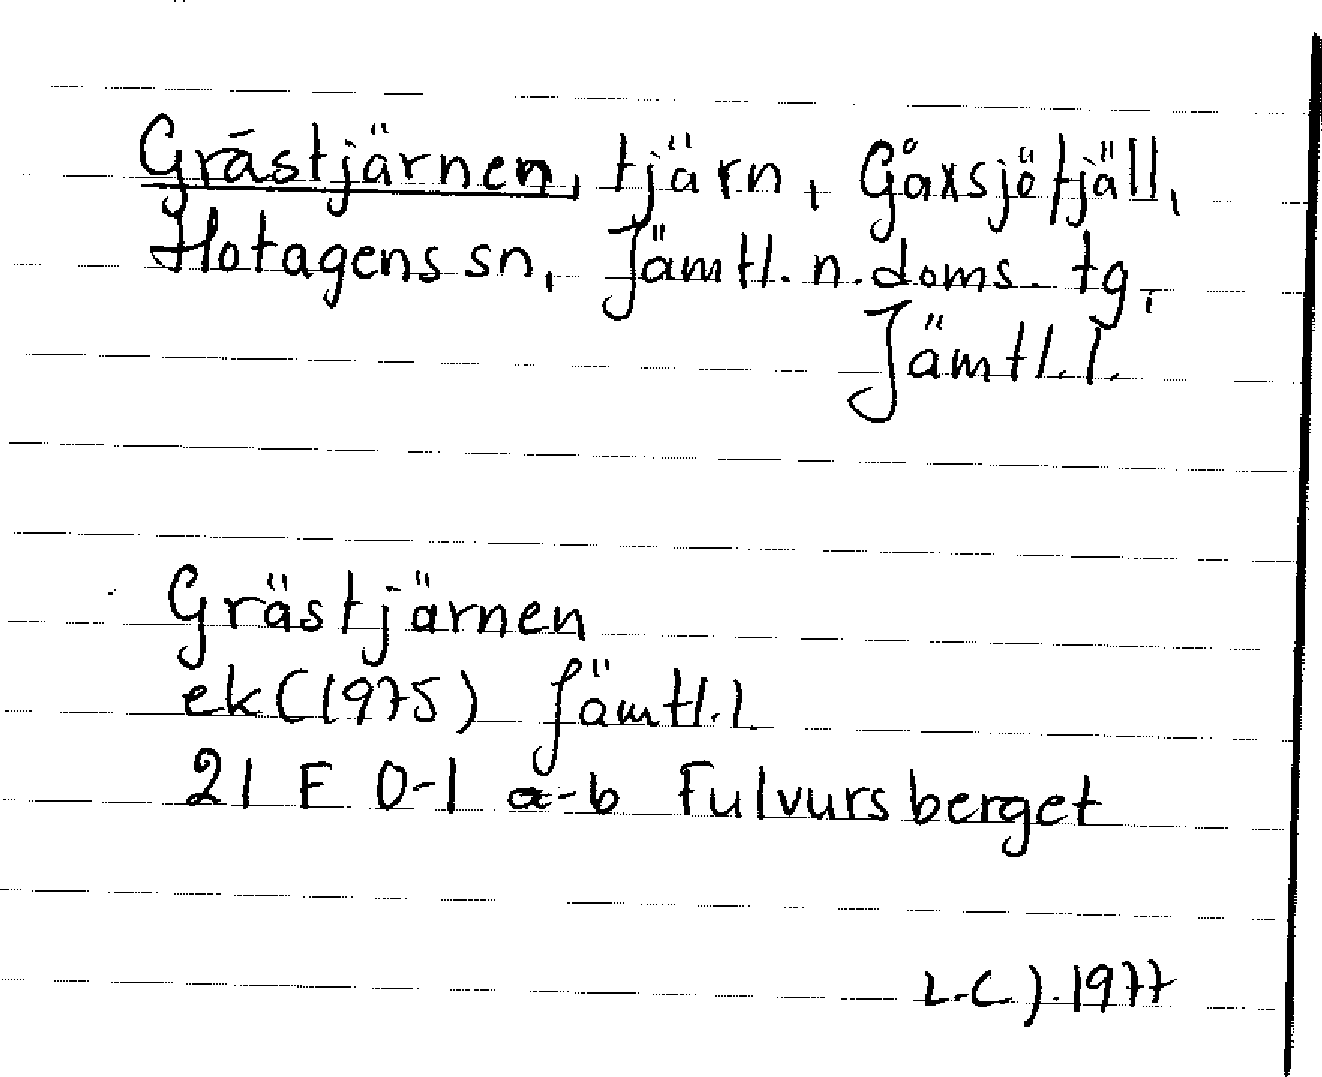 Grästjärnen, tjärn, Gåxsjöfjäll,
Hotagens sn, Jämtl. n. doms. tg,
Jämtl. l.
Grästjärnen
ek (1975) Jämtl. l.
21 F 0-1 a-b Fulvursberget
L.C J. 1977